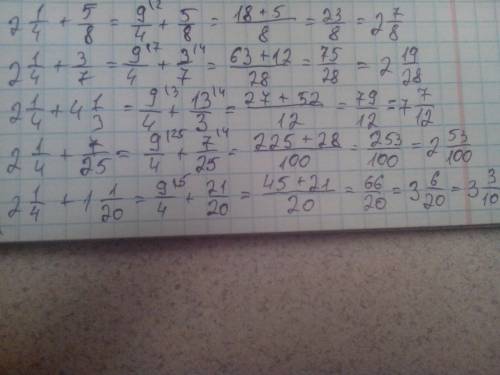 2 1/4 + 5/8 = 9/4 ⁽² + 5/8 = (18+5)/8 = 23/8 = 2 7/8
2 1/4 + 3/7 = 9/4 ⁽⁷ + 3/7 ⁽⁴ = (63+12)/28 = 75/28 = 2 19/28
2 1/4 + 4 1/3 = 9/4 ⁽³ + 13/3 ⁽⁴ = (27+52)/12 = 79/12 = 7 7/12
2 1/4 + 7/25 = 9/4 ⁽²⁵ + 7/25 ⁽⁴ = (225+28)/100 = 253/100 = 2 53/100
2 1/4 + 1 1/20 = 9/4 ⁽⁵ + 21/20 = (45+21)/20 = 66/20 = 3 6/20 = 3 3/10